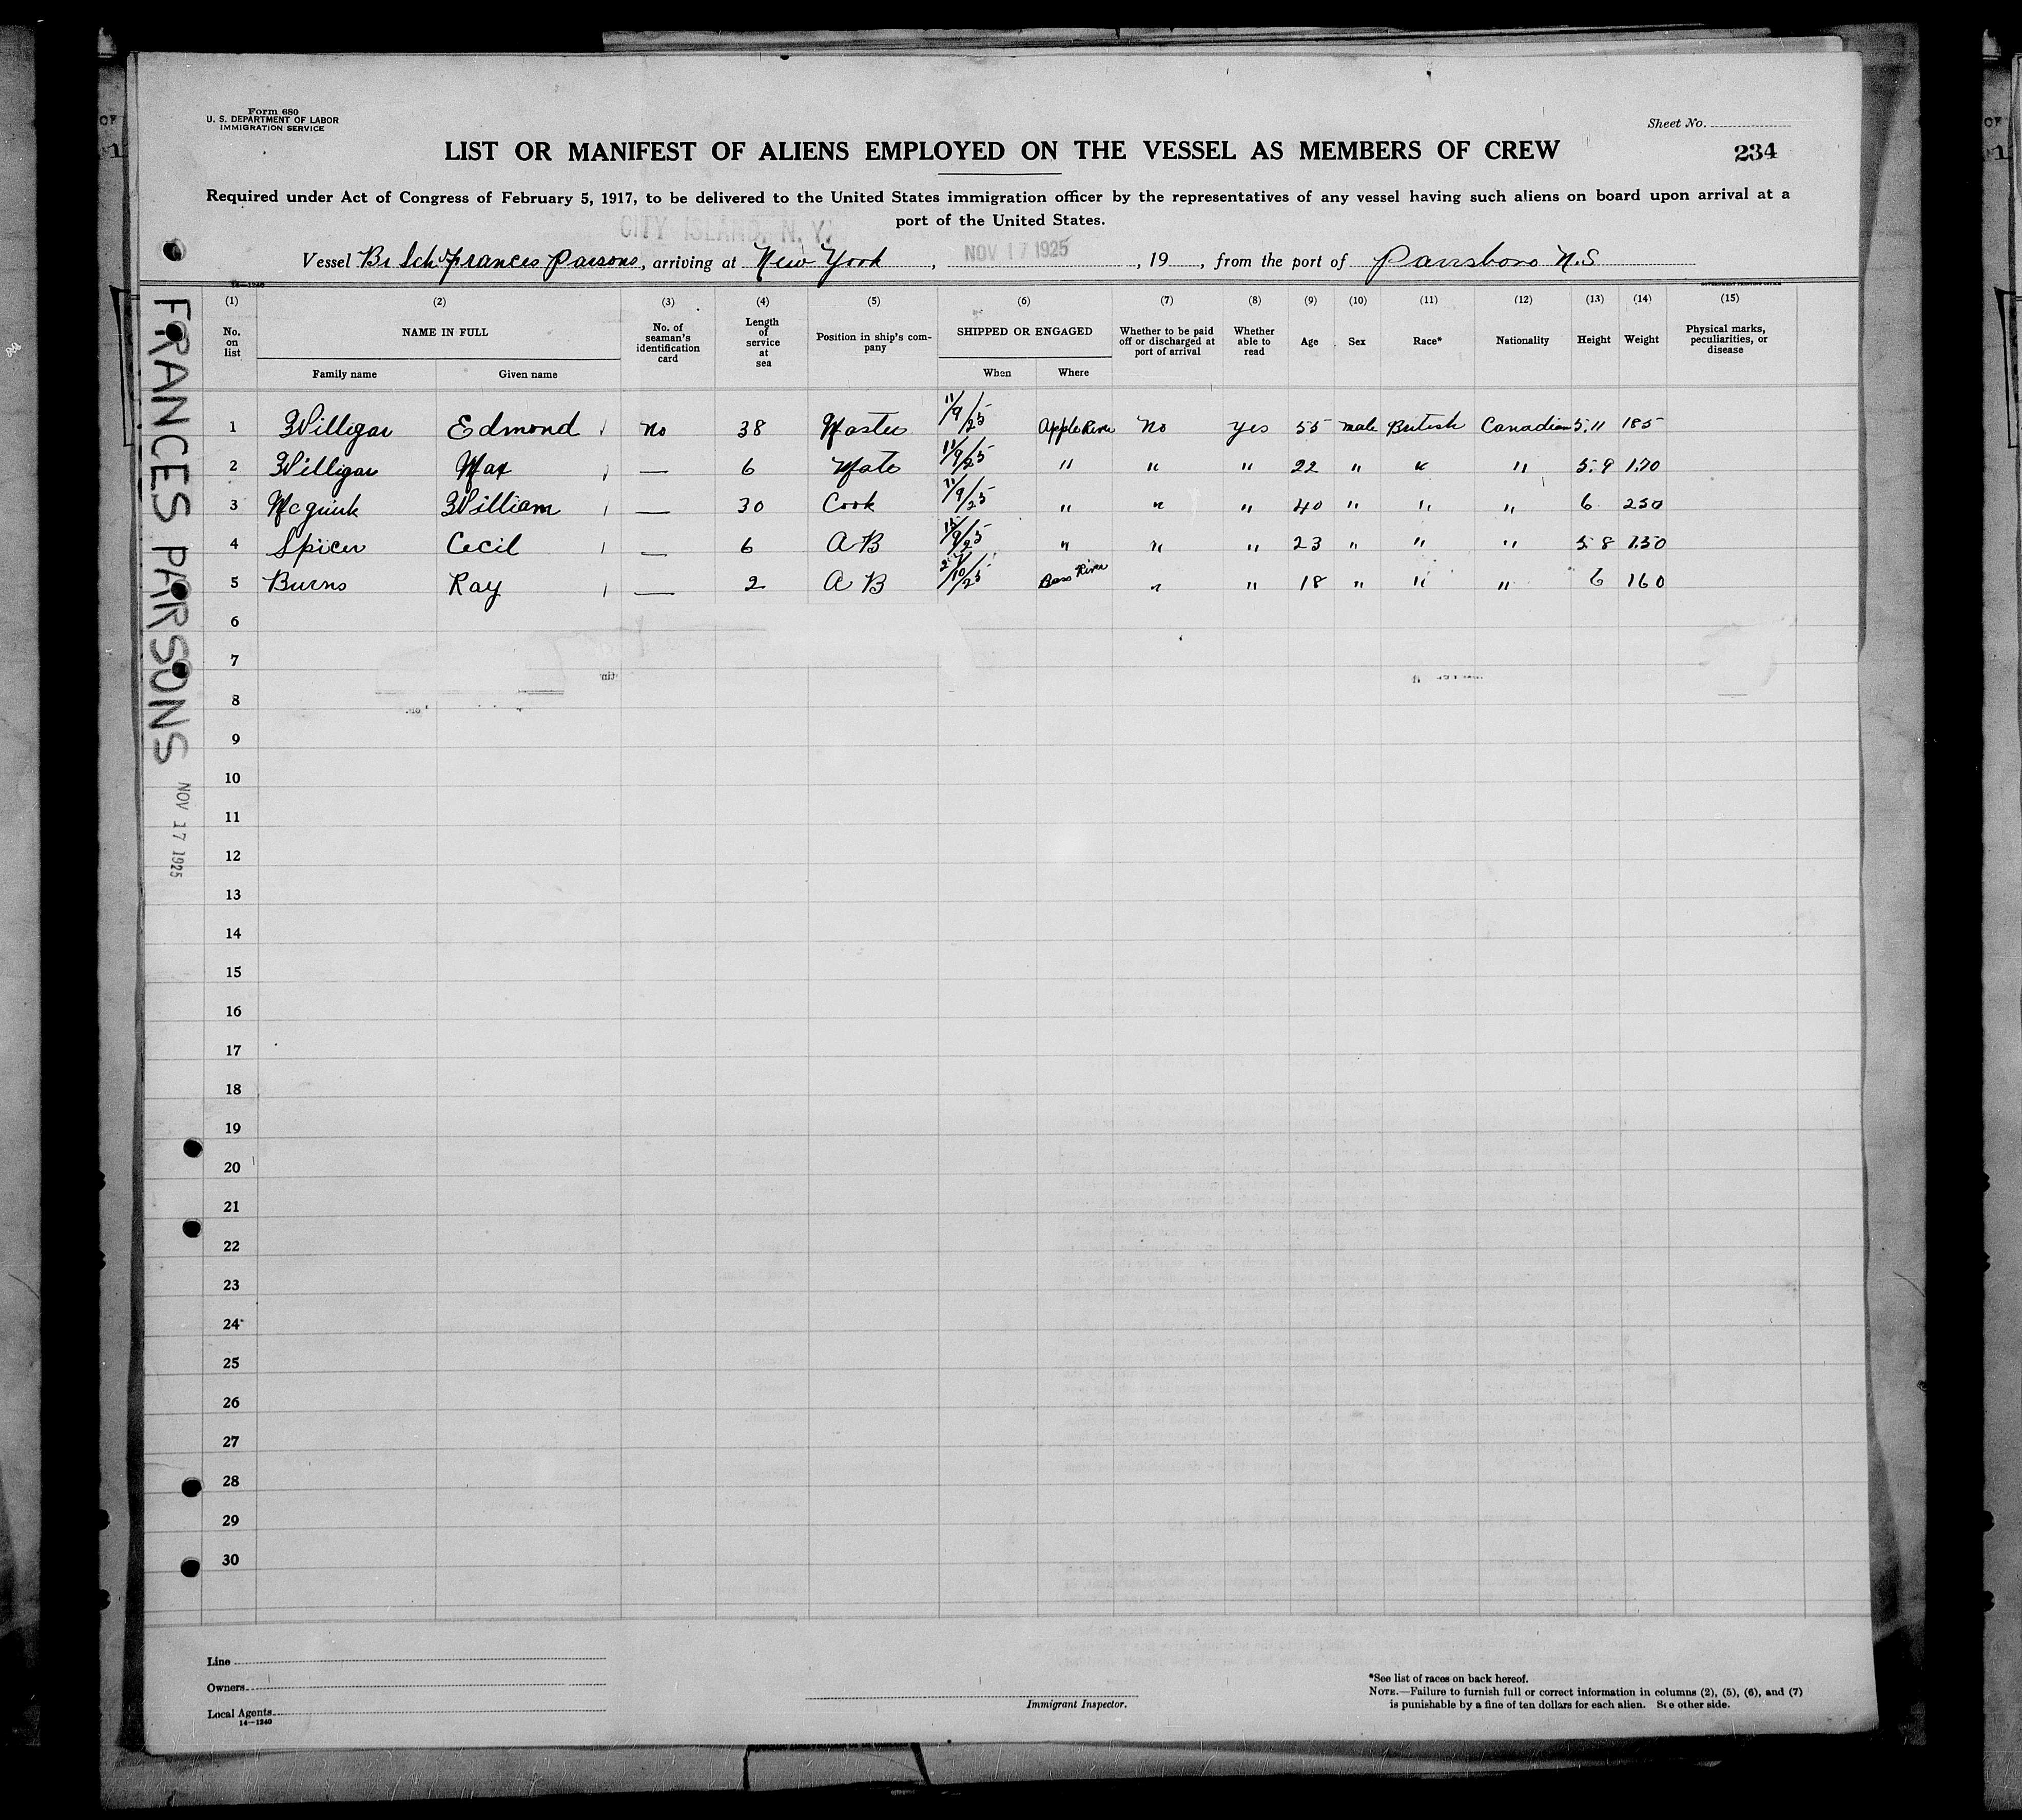 Form 680
U. S. DEPARTMENT OF LABOR
IMMIGRATION SERVICE
Sheet No.
LIST OR MANIFEST OF ALIENS EMPLOYED ON THE VESSEL AS MEMBERS OF CREW
234
Required under Act of Congress of February 5, 1917, to be delivered to the United States immigration officer by the representatives of any vessel having such aliens on board upon arrival at a
port of the United States.
CITY ISLAND, N. Y.
Vessel Br Sch Frances Parsons, arriving at New York, NOV 17 1925, 19, from the port of Parrsboro N.S
(1) (2) (3) (4) (5) (6) (7) (8) (9) (10) (11) (12) (13) (14) (15)
No. on list NAME IN FULL No. of seaman's identification card Length of service at sea Position in ship's company SHIPPED OR ENGAGED Whether to be paid off or discharged at port of arrival Whether able to read Age Sex Race* Nationality Height Weight Physical marks, peculiarities, or disease
Family name Given name When Where
1 Willigar Edmond No 38 Master 11/9/25 Apple River No Yes 55 Male British Canadian 5.11 185
2 Willigar Max — 6 Mate 11/9/25 " " " 22 " " " 5.9 170
3 Mcguirk William — 30 Cook 11/9/25 " " " 40 " " " 6 250
4 Spicer Cecil — 6 A B /9/25 " " " 23 " " " 5 8 150
5 Burns Ray — 2 A B /10/25 Bass River " " 18 " " " 6 160
6
7
8
9
10
11
12
13
14
15
16
17
18
19
20
21
22
23
24
25
26
27
28
29
30
FRANCES PARSONS NOV 17 1925
Line
Owners
Local Agents
14—1240
Immigrant Inspector.
*See list of races on back hereof.
NOTE.—Failure to furnish full or correct information in columns (2), (5), (6), and (7)
is punishable by a fine of ten dollars for each alien. See other side.